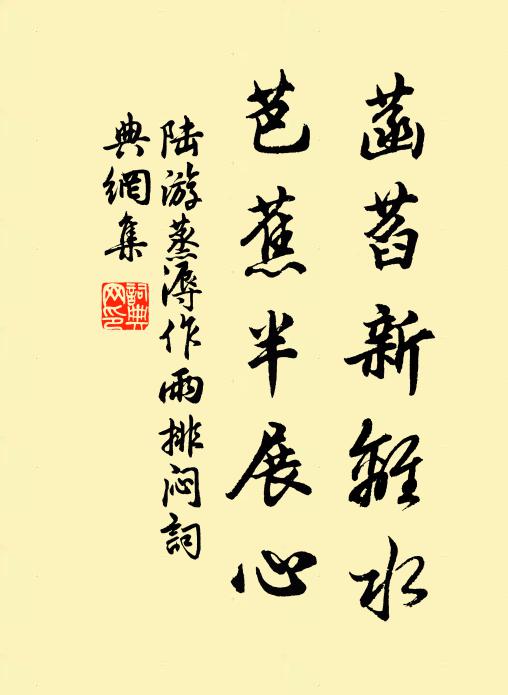 菡萏新離水
芭蕉半展心
陆游蒸溽作雨排闷詞
典網集
詞典網印